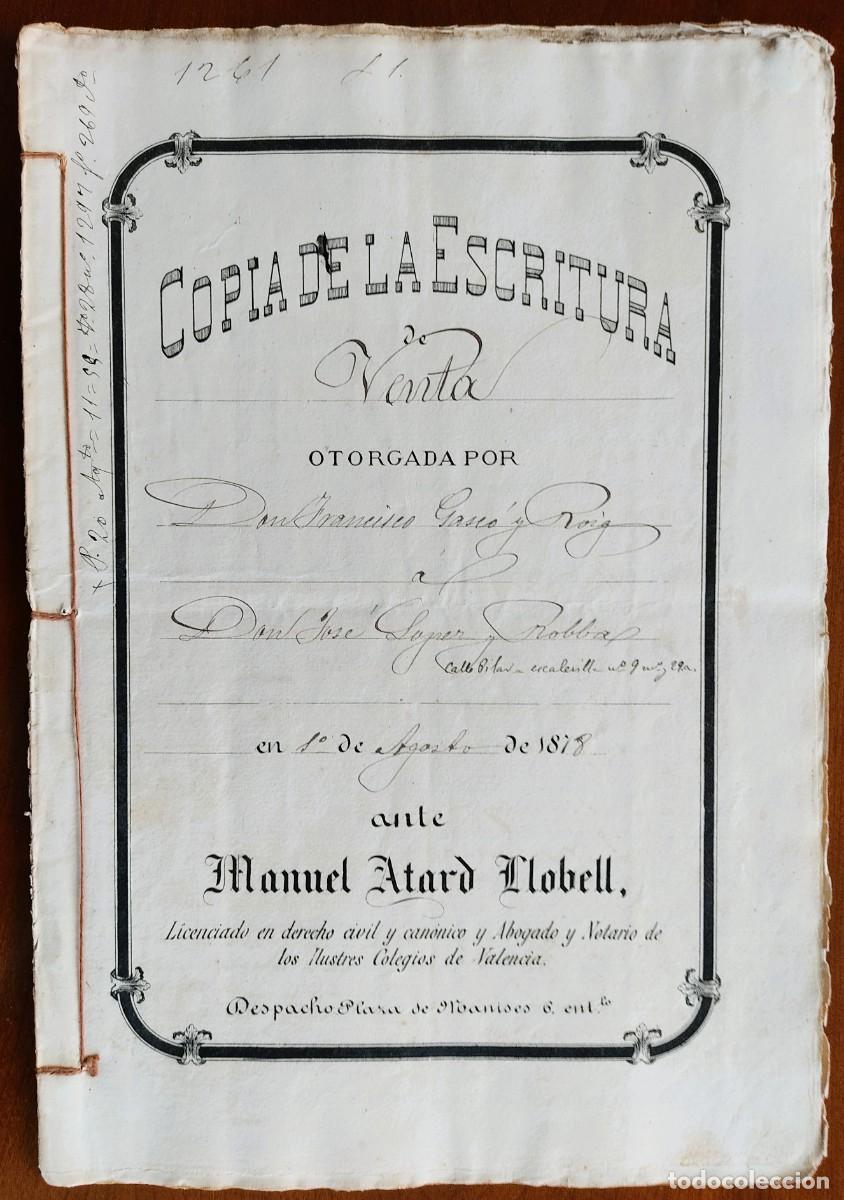 1261 L 1.
COPIA DE LA ESCRITURA
de
Venta
OTORGADA POR
Don Francisco Gascó y Roig
a
Don José Lopez y Robba
Calle Pilar escalerilla nº 9
en 1º de Agosto de 1878
ante
Manuel Atard Llobell,
Licenciado en derecho civil y canónico y Abogado y Notario de
los Ilustres Colegios de Valencia.
Despacho Plaza de Manises 6. ent.lo
P. 20 Agto 11 = 99 = 1297 fº. 269
todocoleccion